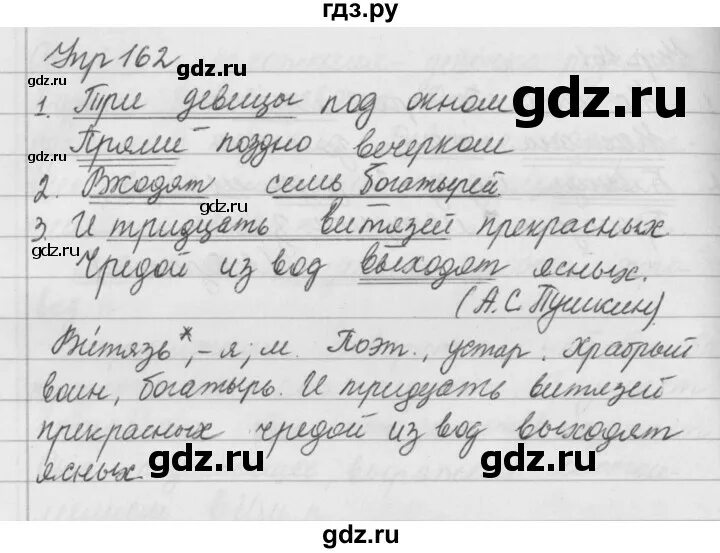 гдз.ру
Упр 162
1. Три девицы под окном
Пряли поздно вечерком
2. Входят семь богатырей.
3. И тридцать витязей прекрасных
Чредой из вод выходят ясных.
(А.С. Пушкин).
Ви́тязь*, -я; м. Поэт., устар. Храбрый
воин, богатырь. И тридцать витязей
прекрасных чредой из вод выходят
ясных.
gdz.ru
gdz.ru
gdz.ru
gdz.ru
gdz.ru
gdz.ru
gdz.ru
gdz.ru
gdz.ru
gdz.ru
gdz.ru
gdz.ru